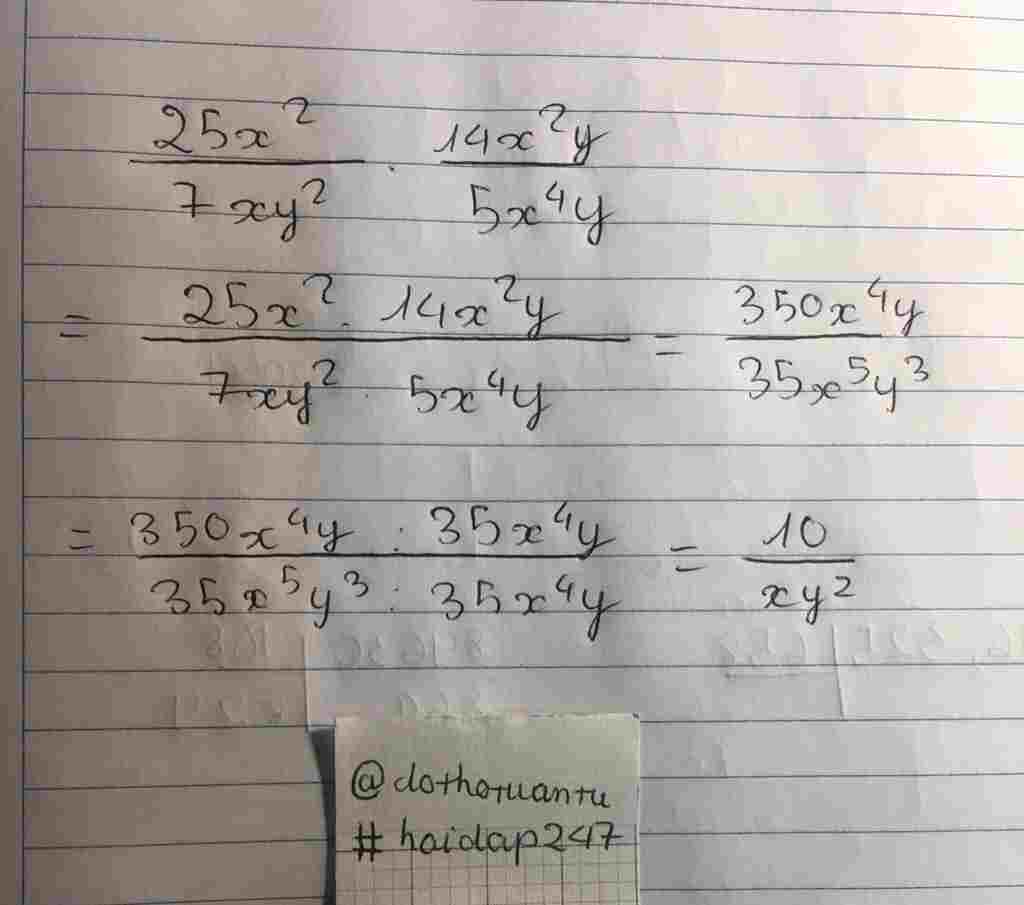 25x² / 7xy² . 14x²y / 5x⁴y
= 25x² . 14x²y / 7xy² . 5x⁴y = 350x⁴y / 35x⁵y³
= 350x⁴y : 35x⁴y / 35x⁵y³ : 35x⁴y = 10 / xy²
@dothotuantu
#hoidap247